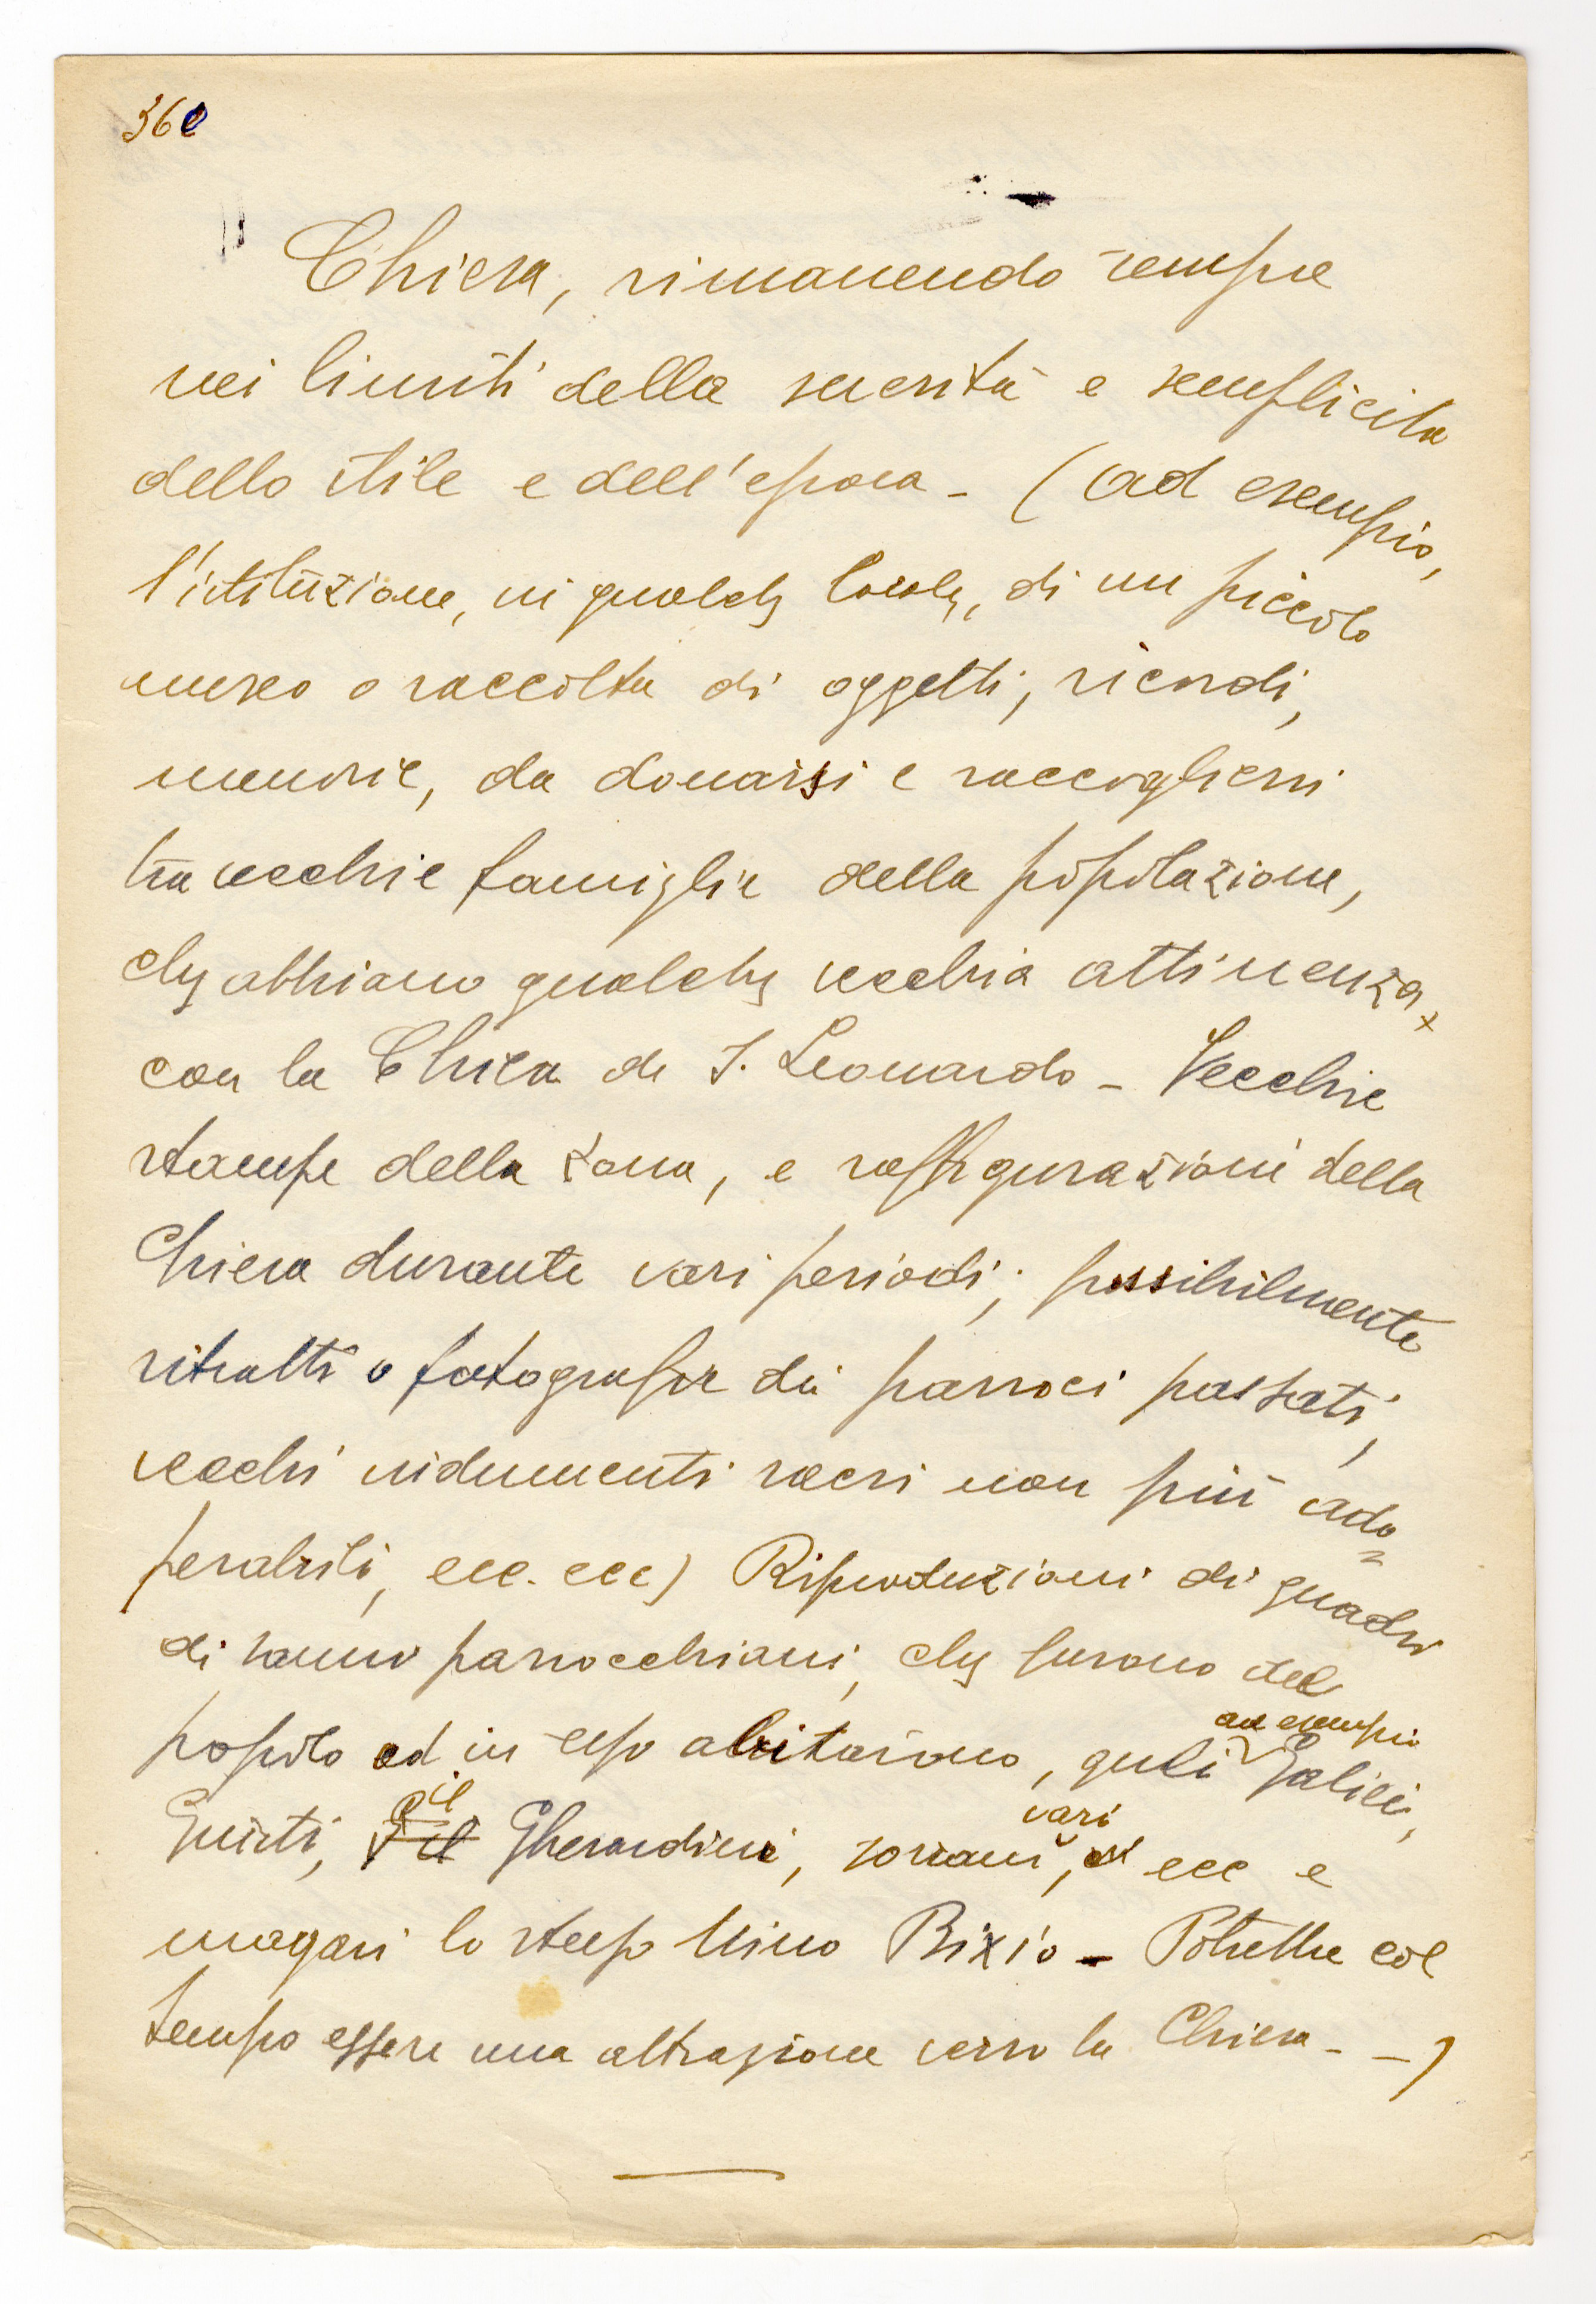 36e
Chiesa, rimanendo sempre
nei limiti della severità e semplicità
dello stile e dell'epoca - (ad esempio,
l'istituzione, in qualche locale, di un piccolo
museo o raccolta di oggetti, ricordi,
memorie, da donarsi e raccogliersi
tra vecchie famiglie della popolazione,
che abbiano qualche vecchia attinenza
con la Chiesa di S. Leonardo - Vecchie
stampe della zona, e raffigurazioni della
Chiesa durante vari periodi; possibilmente
ritratti o fotografie dei parroci passati,
vecchi indumenti sacri non più ado=
perabili, ecc. ecc) Riproduzioni di quadri
di sommi parrocchiani, che furono del
popolo ed in esso abitarono, quali ad esempio Galilei,
Giusti, il Gherardini, sovrani vari, ecc e
magari lo stesso Nino Bixio - Potrebbe col
tempo essere una attrazione verso la Chiesa - -)